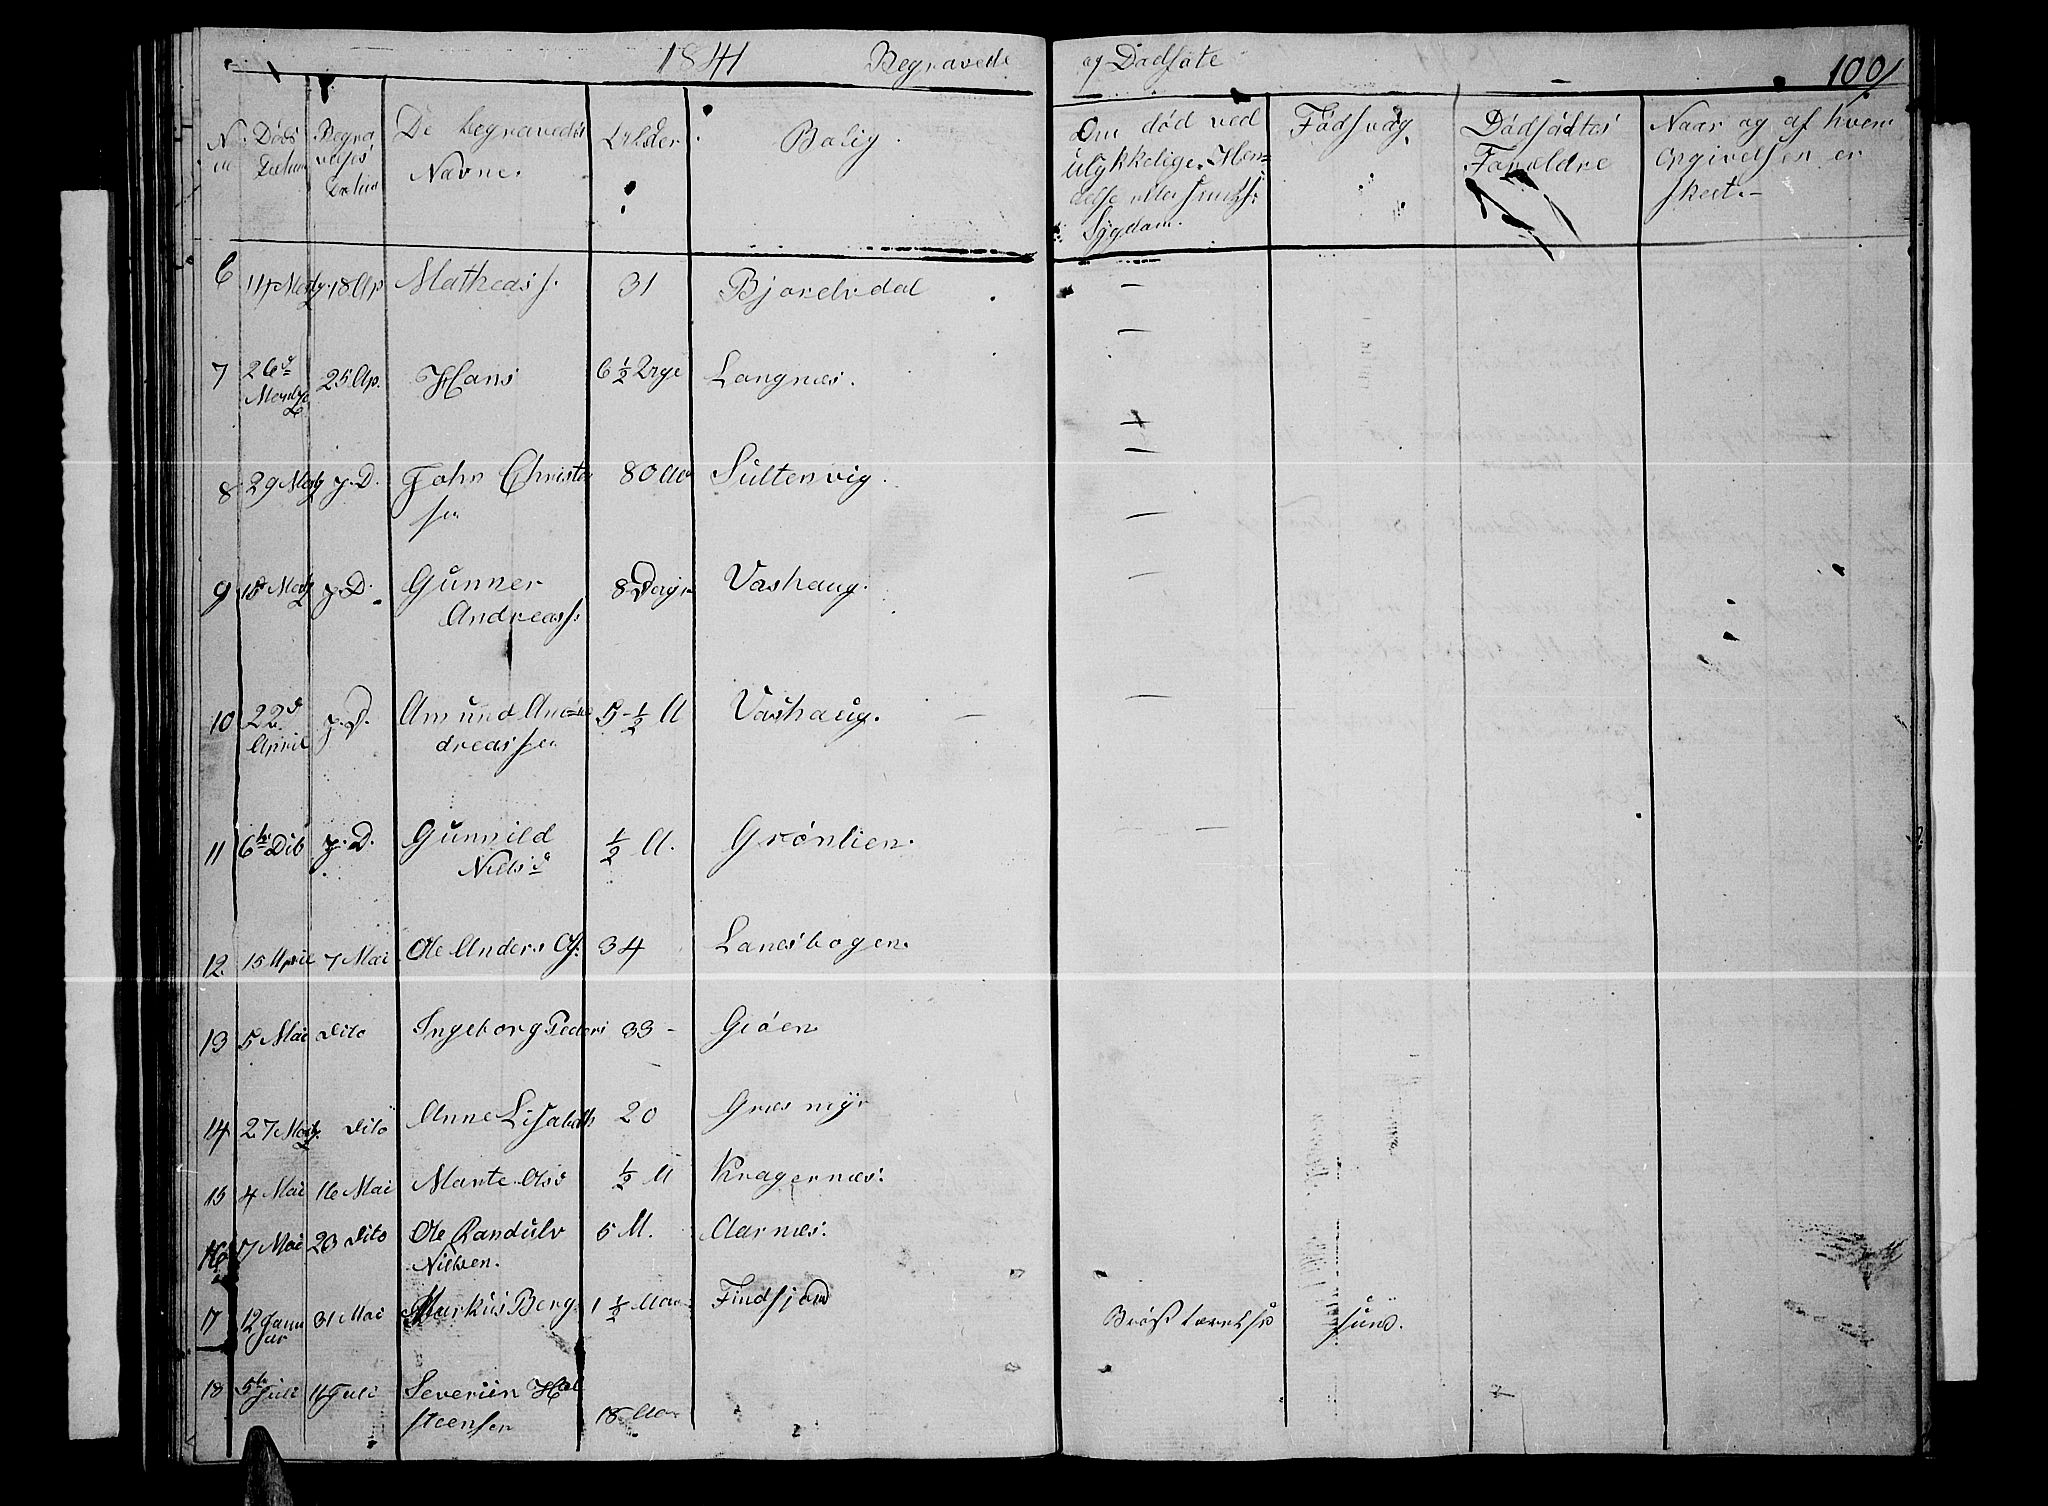 1841 Begravede og Dødføte 100
No Døds Datum Begravelses Datum De begravedes Navne. Alder. Bolig. Om død ved ulykkelige Hændelse eller smits: Sygdom. Fødsvæg Dødfødtes Forældre Naar og af hvem Opgivelsen er skeet.
6 14 Martz 18 Ap Matheas s. 31 Bjorelvdal —
7 26d Martz 25 Ap. Hans 6 1/2 Langnæs. —
8 29 Martz p.D. John Christen
sen 80 Aar Sultenvig. —
9 18 Martz p.D. Gunner
Andreass. 8 Dage Vashaug. —
10 22d April p.D. Amund An=
dreassen 5 1/2 A Vashaug. —
11 6te Dito p.D. Gunnild
Nielsd 1/2 A. Grønlien.
12. 15 April 7 Mai Ole Anders Ols. 34 Lanesbogen.
13 5 Mai Dito Ingeborg Peders 33 - Giøen
14 27 Martz. Dito Anne Lisabeth 20 Græsmyr
15 4 Mai 16 Mai Marte Olsd 1/2 A Kragernæs.
16 17 Mai 23 Dito Ole Randulv
Nielsen. 5 M. Aarnæs.
17 12 Januar 31 Mai Markus Berg 1 1/2 Aar Findfjord Brøsttærelse sund.
18 5te Juli 11 Juli Severiin Hol
steensen 18 Aar